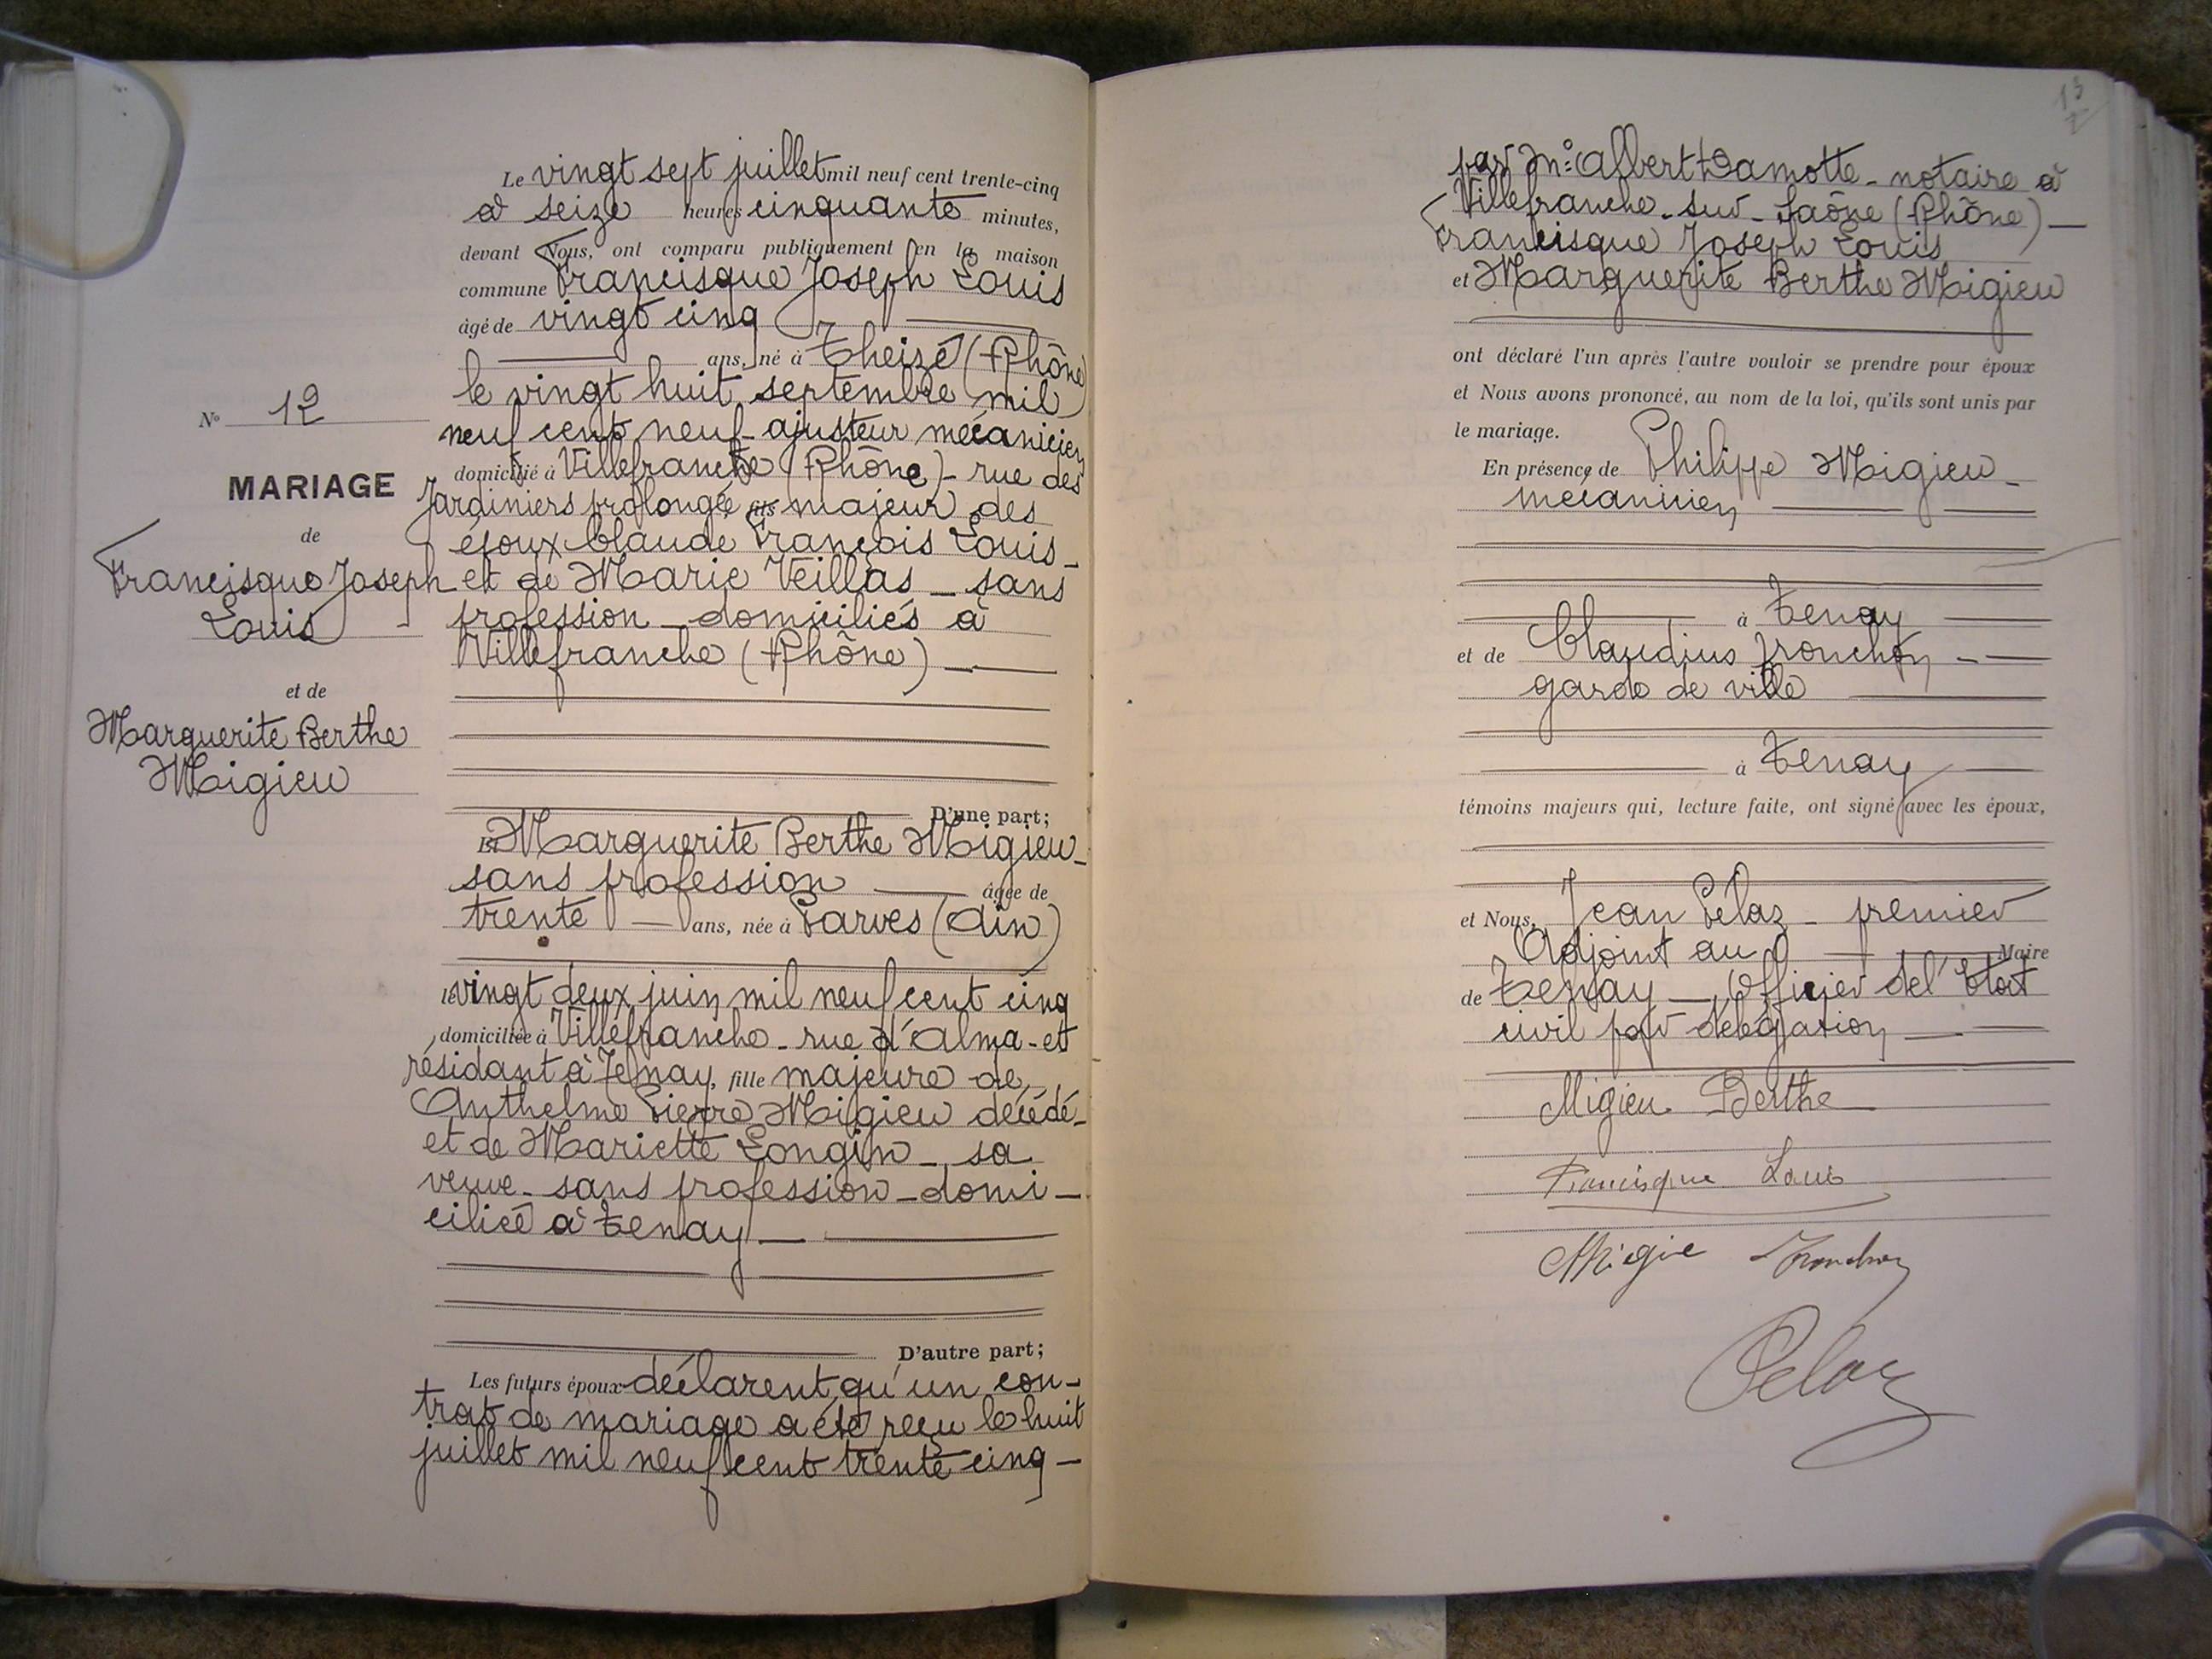 N° 12
MARIAGE
de
Francisque Joseph
Louis
et de
Marguerite Berthe
Migieu
Le vingt sept juillet mil neuf cent trente-cinq
à seize heures cinquante minutes,
devant Nous, ont comparu publiquement en la maison
commune Francisque Joseph Louis
âgé de vingt cinq
ans, né à Theizé (Rhône)
le vingt huit septembre mil
neuf cent neuf - ajusteur mécanicien
domicilié à Villefranche (Rhône) - rue des
Jardiniers prolongée fils majeur des
époux Claude François Louis -
et de Marie Veillas - sans
profession - domiciliés à
Villefranche (Rhône) -
D'une part;
Et Marguerite Berthe Migieu -
sans profession âgée de
trente ans, née à Parves (Ain)
le vingt deux juin mil neuf cent cinq
domiciliée à Villefranche - rue d'Alma - et
résidant à Tenay, fille majeure de
Anthelme Pierre Migieu décédé -
et de Mariette Longin - sa
veuve - sans profession - domi-
ciliée à Tenay -
D'autre part;
Les futurs époux déclarent qu'un con-
trat de mariage a été reçu le huit
juillet mil neuf cent trente cinq -
13
par Me Albert Damotte - notaire à
Villefranche - sur - Saône (Rhône) -
Francisque Joseph Louis
et Marguerite Berthe Migieu
ont déclaré l'un après l'autre vouloir se prendre pour époux
et Nous avons prononcé, au nom de la loi, qu'ils sont unis par
le mariage.
En présence de Philippe Migieu -
mécanicien
à Tenay
et de Claudius Fronchon -
garde de ville
à Tenay
témoins majeurs qui, lecture faite, ont signé avec les époux,
et Nous, Jean Pelaz - premier
Adjoint au Maire
de Tenay - Officier de l'Etat
civil par délégation -
Migieu Berthe
Francisque Louis
Migie Fronchon
Pelaz